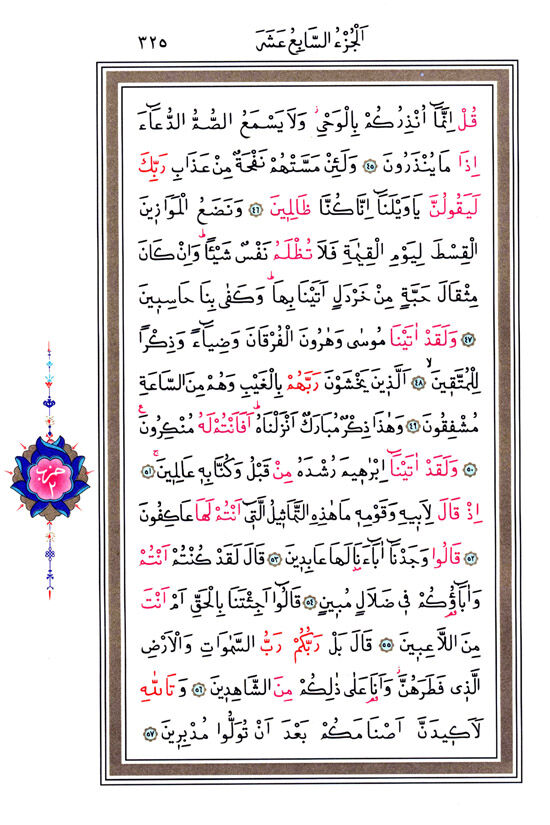 اَلْجُزْءُ السَّابِعُ عَشَرَ
٣٢٥
قُلْ اِنَّمَٓا اُنْذِرُكُمْ بِالْوَحْيِۘ وَلَا يَسْمَعُ الصُّمُّ الدُّعَٓاءَ
اِذَا مَا يُنْذَرُونَ ﴿٤٥﴾ وَلَئِنْ مَسَّتْهُمْ نَفْحَةٌ مِنْ عَذَابِ رَبِّكَ
لَيَقُولُنَّ يَاوَيْلَنَٓا اِنَّا كُنَّا ظَالِمٖينَ ﴿٤٦﴾ وَنَضَعُ الْمَوَازٖينَ
الْقِسْطَ لِيَوْمِ الْقِيٰمَةِ فَلَا تُظْلَمُ نَفْسٌ شَيْـًٔاۜ وَاِنْ كَانَ
مِثْقَالَ حَبَّةٍ مِنْ خَرْدَلٍ اَتَيْنَا بِهَاۜ وَكَفٰى بِنَا حَاسِبٖينَ
﴿٤٧﴾ وَلَقَدْ اٰتَيْنَا مُوسٰى وَهٰرُونَ الْفُرْقَانَ وَضِيَٓاءً وَذِكْرًا
لِلْمُتَّقٖينَۙ ﴿٤٨﴾ اَلَّذٖينَ يَخْشَوْنَ رَبَّهُمْ بِالْغَيْبِ وَهُمْ مِنَ السَّاعَةِ
مُشْفِقُونَ ﴿٤٩﴾ وَهٰذَا ذِكْرٌ مُبَارَكٌ اَنْزَلْنَاهُۜ اَفَاَنْتُمْ لَهُ مُنْكِرُونَ۟
﴿٥٠﴾ وَلَقَدْ اٰتَيْنَٓا اِبْرٰهٖيمَ رُشْدَهُ مِنْ قَبْلُ وَكُنَّا بِهٖ عَالِمٖينَۚ ﴿٥١﴾
اِذْ قَالَ لِاَبٖيهِ وَقَوْمِهٖ مَا هٰذِهِ التَّمَاثٖيلُ الَّتٖٓي اَنْتُمْ لَهَا عَاكِفُونَ
﴿٥٢﴾ قَالُوا وَجَدْنَٓا اٰبَٓاءَنَا لَهَا عَابِدٖينَ ﴿٥٣﴾ قَالَ لَقَدْ كُنْتُمْ اَنْتُمْ
وَاٰبَٓاؤُ۬كُمْ فٖي ضَلَالٍ مُبٖينٍ ﴿٥٤﴾ قَالُٓوا اَجِئْتَنَا بِالْحَقِّ اَمْ اَنْتَ
مِنَ اللَّاعِبٖينَ ﴿٥٥﴾ قَالَ بَلْ رَبُّكُمْ رَبُّ السَّمٰوَاتِ وَالْاَرْضِ
الَّذٖي فَطَرَهُنَّۘ وَاَنَا عَلٰى ذٰلِكُمْ مِنَ الشَّاهِدٖينَ ﴿٥٦﴾ وَتَاللّٰهِ
لَاَكٖيدَنَّ اَصْنَامَكُمْ بَعْدَ اَنْ تُوَلُّوا مُدْبِرٖينَ ﴿٥٧﴾
حزب